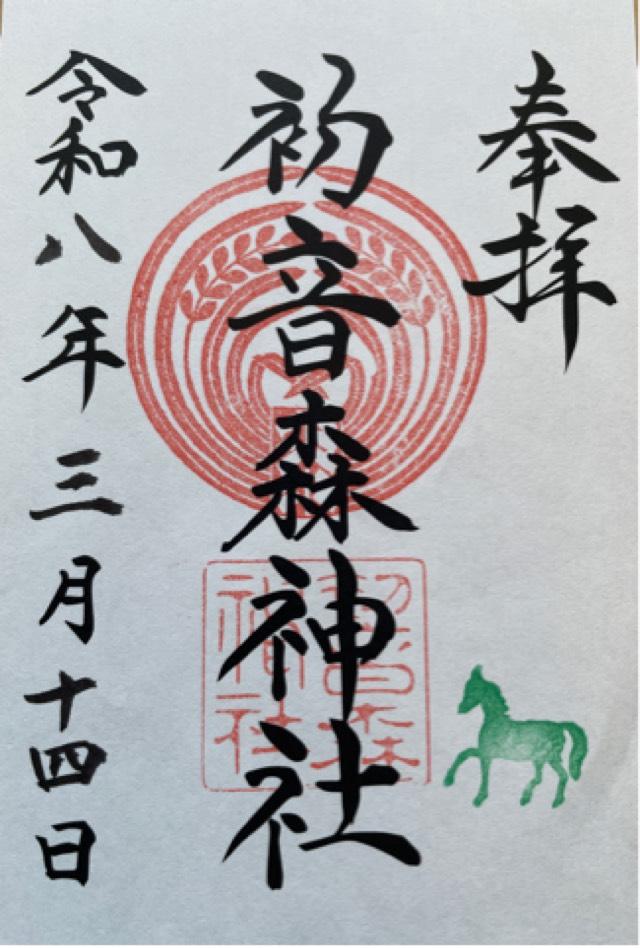 奉拝
初音森神社
初音森神社
令和八年三月十四日